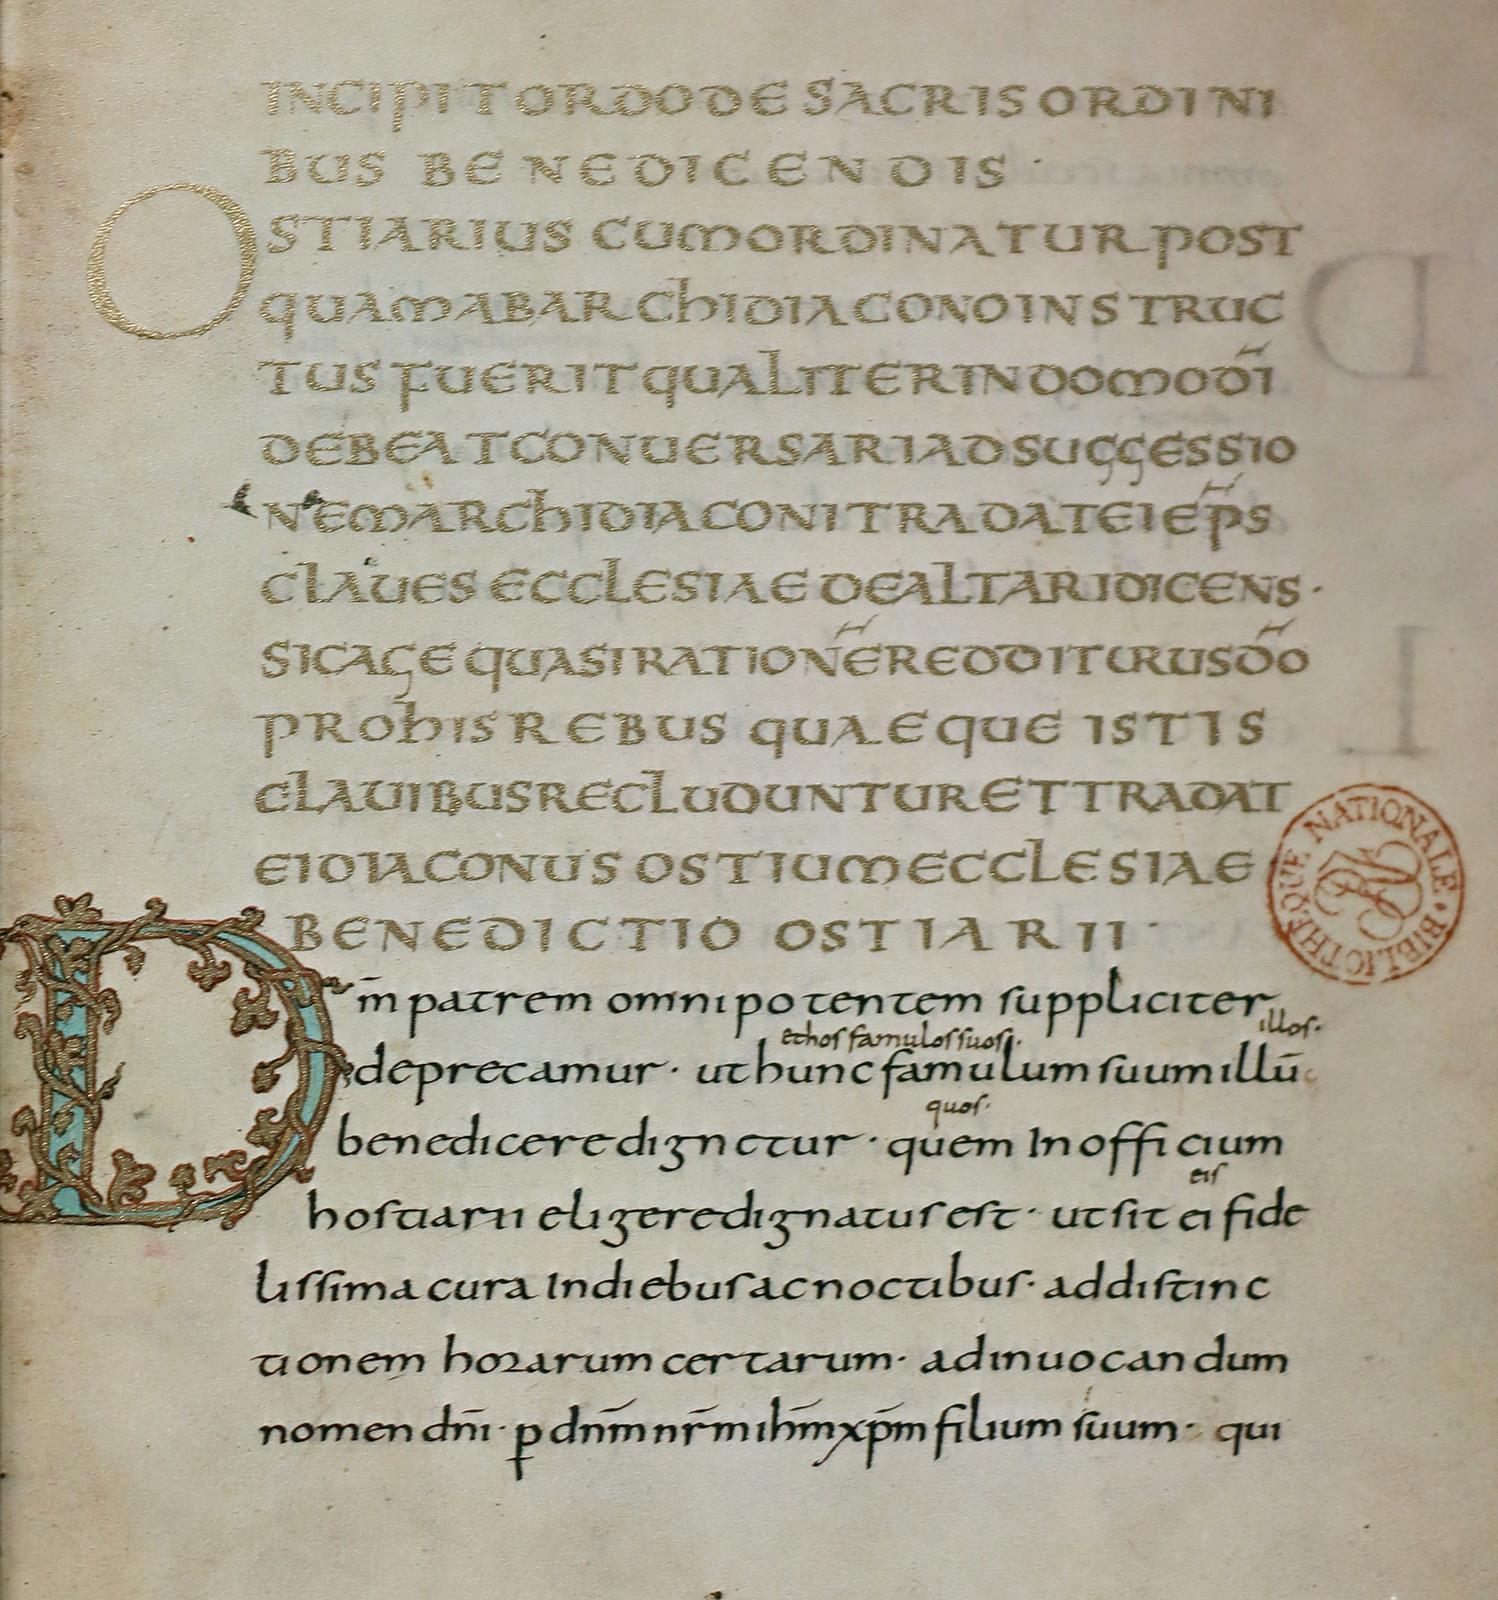 INCIPIT ORDO DE SACRIS ORDINI
BUS BENEDICENDIS ·
OSTIARIUS CUM ORDINATUR POST
QUAM AB ARCHIDIACONO INSTRUC
TUS FUERIT QUALITER IN DOMO DI̅
DEBEAT CONUERSARI AD SUGGESSIO
NEM ARCHIDIACONI TRADAT EI EP̅S
CLAUES ECCLESIAE DE ALTARI DICENS ·
SIC AGE QUASI RATIONE̅ REDDITURUS DO̅
PRO HIS REBUS QUAEQUE ISTIS
CLAUIBUS RECLUDUNTUR ET TRADAT
EI DIACONUS OSTIUM ECCLESIAE
BENEDICTIO OSTIARII ·
Dm̅ patrem omnipotentem suppliciter
illos·
et hos famulos suos·
deprecamur · ut hunc famulum suum illu̅
quos·
benedicere dignetur · quem In officium
eis
hostiarii eligere dignatus est · ut sit ei fide
lissima cura In diebus ac noctibus · ad distinc
tionem horarum certarum · ad inuocandum
nomen dn̅i · p̱ dn̅m nr̅m ihm̅ xp̅m filium suum · qui
BIBLIOTHÈQUE NATIONALE